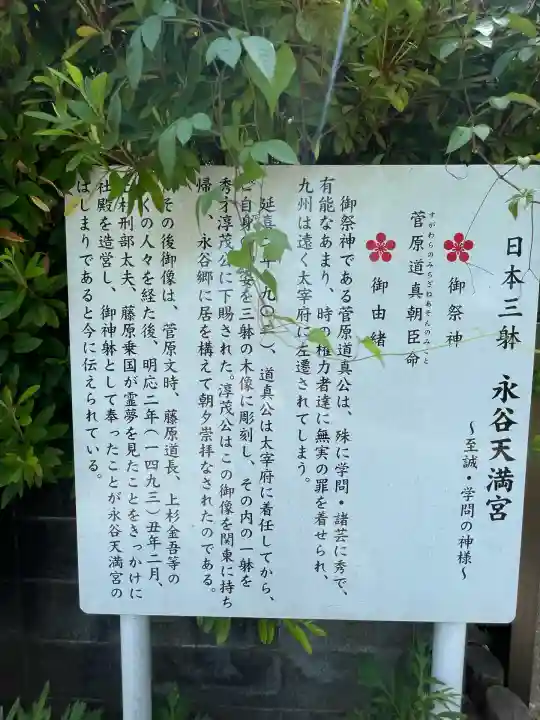 日本三躰 永谷天満宮
～至誠・学問の神様～
御祭神
すがわらのみちざねあそんのみこと
菅原道真朝臣命
御由緒
御祭神である菅原道真公は、殊に学問・諸芸に秀で、
有能なあまり、時の権力者達に無実の罪を着せられ、
九州は遠く太宰府に左遷されてしまう。
延喜 年 九〇二)、道真公は太宰府に着任してから、
自身 姿を三躰の木像に彫刻し、その内の一躰を
秀才淳茂公に下賜された。淳茂公はこの御像を関東に持ち
帰 、永谷郷に居を構えて朝夕崇拝なされたのである。
その後御像は、菅原文時、藤原道長、上杉金吾等の
くの人々を経た後、明応二年(一四九三)丑年二月、
杉刑部太夫、藤原乗国が霊夢を見たことをきっかけに
社殿を造営し、御神躰として奉ったことが永谷天満宮の
はじまりであると今に伝えられている。